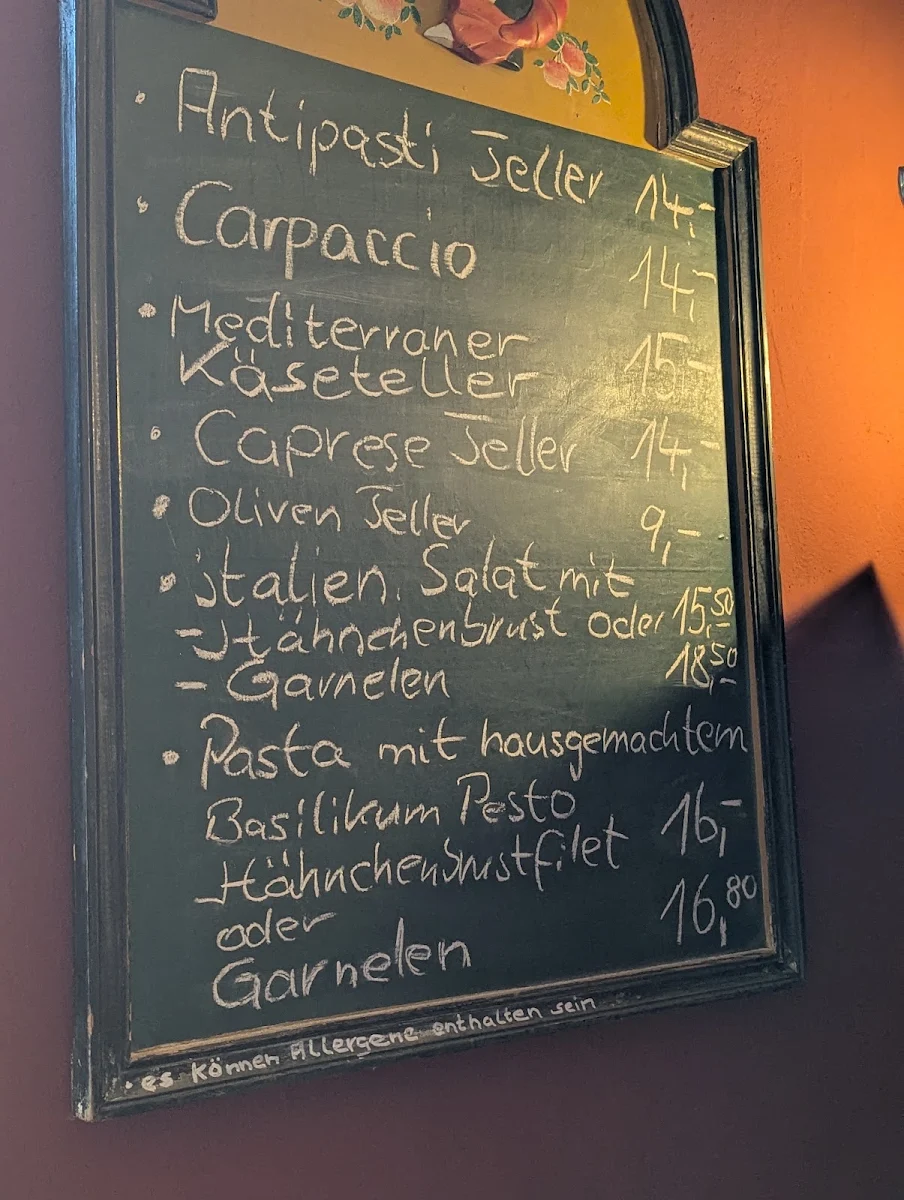 · Antipasti Teller 14,-
· Carpaccio 14,-
· Mediterraner
Käseteller 15,-
· Caprese Teller 14,-
· Oliven Teller 9,-
· italien. Salat mit
- Hähnchenbrust oder 15,50
- Garnelen 18,50
· Pasta mit hausgemachtem
Basilikum Pesto 16,-
Hähnchenbrustfilet
oder 16,80
Garnelen
· es können Allergene enthalten sein